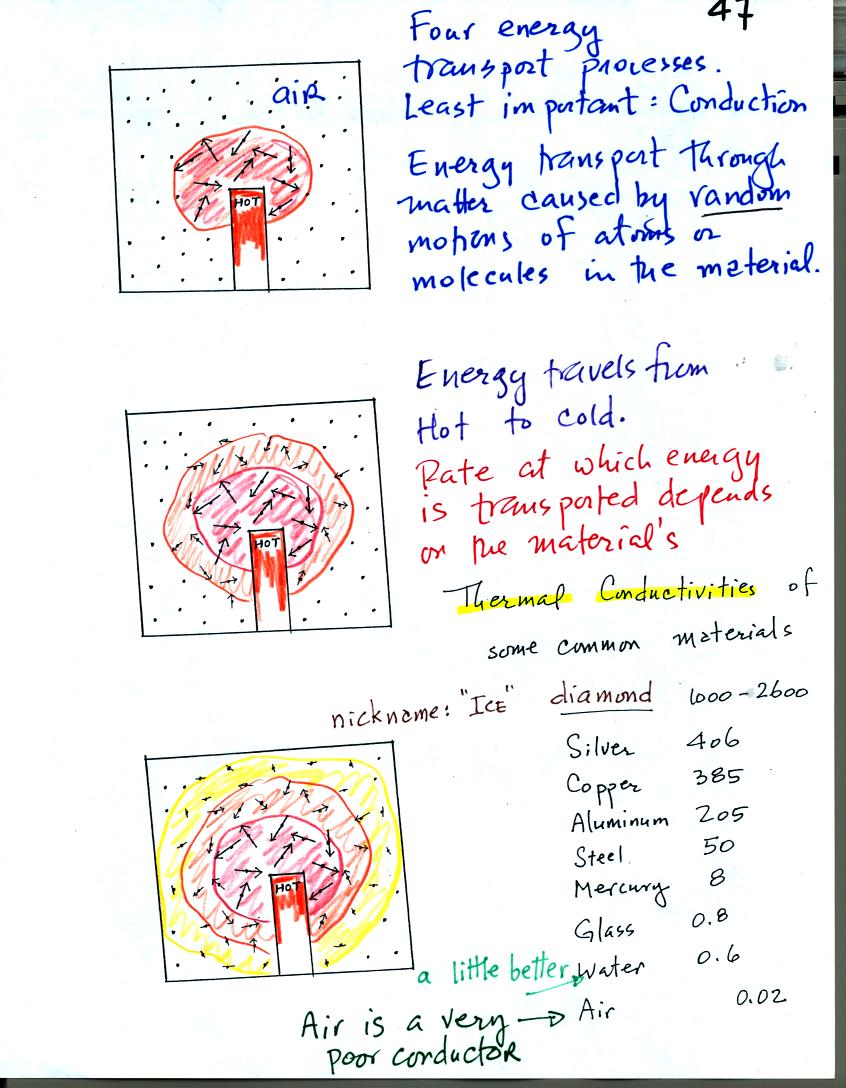 47
Four energy
transport processes.
Least important : Conduction
air
Energy transport through
matter caused by random
motions of atoms or
molecules in the material.
HOT
Energy travels from
Hot to cold.
Rate at which energy
is transported depends
on the material's
HOT
Thermal Conductivities of
some common materials
nickname: "ICE" diamond 1000-2600
Silver 406
Copper 385
Aluminum 205
Steel 50
Mercury 8
HOT
Glass 0.8
a little better Water 0.6
Air is a very → Air 0.02
poor conductor